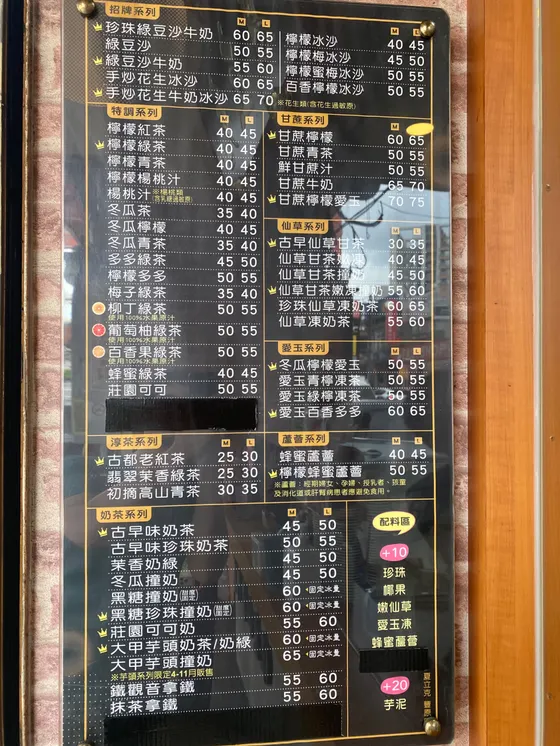 招牌系列 M L
珍珠綠豆沙牛奶 60 65
綠豆沙 50 55
綠豆沙牛奶 55 60
手炒花生冰沙 60 65
手炒花生牛奶冰沙 65 70
M L
檸檬冰沙 40 45
檸檬梅冰沙 45 50
檸檬蜜梅冰沙 50 55
百香檸檬冰沙 50 55
※花生類(含花生過敏原)
特調系列 M L
檸檬紅茶 40 45
檸檬綠茶 40 45
檸檬青茶 40 45
檸檬楊桃汁 40 45
楊桃汁 ※楊桃類 40 45
冬瓜茶 35 40
冬瓜檸檬 40 45
冬瓜青茶 35 40
多多綠茶 45 50
檸檬多多 50 55
梅子綠茶 35 40
柳丁綠茶 50 55
使用100%水果原汁
葡萄柚綠茶 50 55
使用100%水果原汁
百香果綠茶 50 55
使用100%水果原汁
蜂蜜綠茶 40 45
莊園可可 50 55
甘蔗系列 M L
甘蔗檸檬 60 65
甘蔗青茶 50 55
鮮甘蔗汁 50 55
甘蔗牛奶 65 70
甘蔗檸檬愛玉 70 75
仙草系列 M L
古早仙草甘茶 30 35
仙草甘茶嫩凍 40 45
仙草甘茶撞奶 45 50
仙草甘茶嫩凍撞奶 55 60
珍珠仙草凍奶茶 60 65
仙草凍奶茶 55 60
愛玉系列 M L
冬瓜檸檬愛玉 50 55
愛玉青檸凍茶 50 55
愛玉綠檸凍茶 50 55
愛玉百香多多 60 65
淳茶系列 M L
古都老紅茶 25 30
翡翠茉香綠茶 25 30
初摘高山青茶 30 35
蘆薈系列 M L
蜂蜜蘆薈 40 45
檸檬蜂蜜蘆薈 50 55
※蘆薈：經期婦女、孕婦、授乳者、孩童
及消化道或肝腎病患者應避免食用。
奶茶系列 M L
古早味奶茶 45 50
古早味珍珠奶茶 50 55
茉香奶綠 45 50
冬瓜撞奶 45 50
黑糖撞奶 固定甜度 60 固定冰量
黑糖珍珠撞奶 固定甜度 60 固定冰量
莊園可可奶 55 60
大甲芋頭奶茶/奶綠 60 固定冰量
大甲芋頭撞奶 65 固定冰量
※芋頭系列限定4-11月販售
鐵觀音拿鐵 55 60
抹茶拿鐵 55 60
配料區
+10
珍珠
椰果
嫩仙草
愛玉凍
蜂蜜蘆薈
+20
芋泥
夏立克 豐原